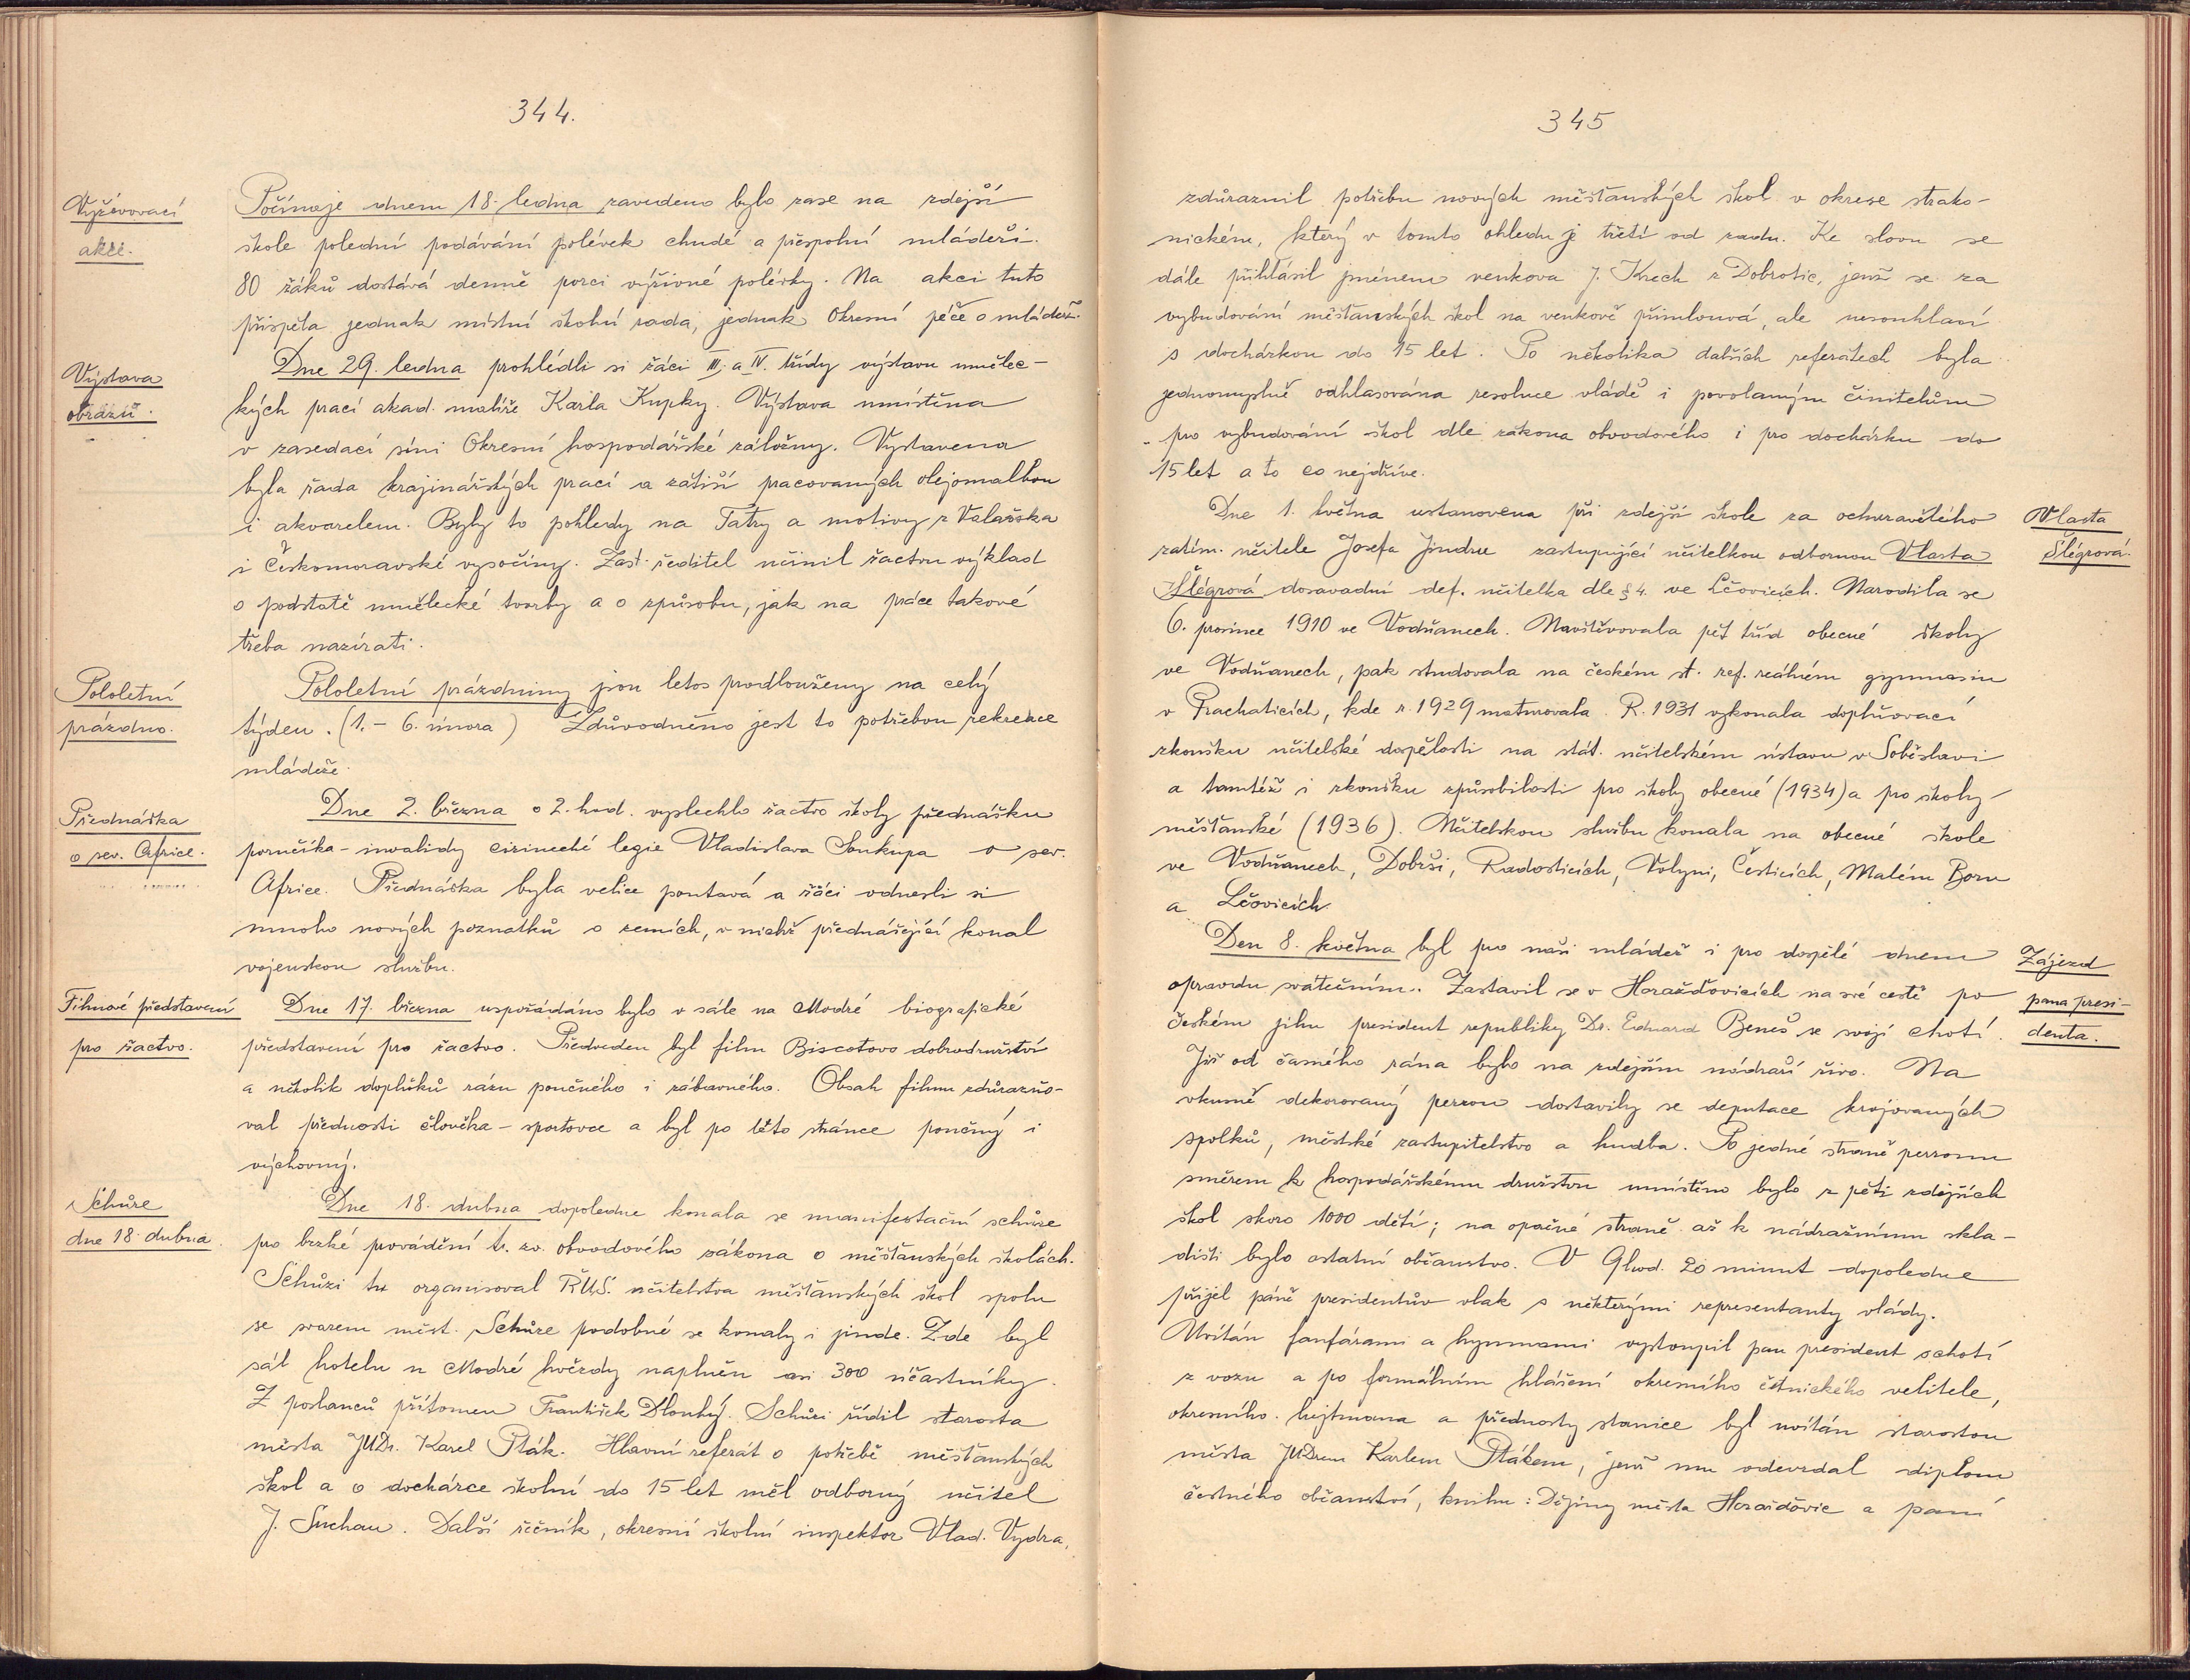 344.
Vyživovací
akce.
Počínaje dnem 18. ledna zavedeno bylo zase na zdejší
škole polední podávání polévek chudé a přespolní mládeži.
80 žáků dostává denně porci výživné polévky. Na akci tuto
přispěla jednak místní školní rada, jednak Okresní péče o mládež.
Výstava
obrazů.
Dne 29. ledna prohlédli si žáci III. a IV. třídy výstavu umělec-
kých prací akad. malíře Karla Kupky. Výstava umístěna
v zasedací síni Okresní hospodářské záložny. Vystavena
byla řada krajinářských prací a zátiší pracovaných olejomalbou
i akvarelem. Byly to pohledy na Tatry a motivy z Valašska
i Českomoravské vysočiny. Zast. ředitel učinil žactvu výklad
o podstatě umělecké tvorby a o způsobu, jak na práce takové
třeba nazírati.
Pololetní
prázdno.
Pololetní prázdniny jsou letos prodlouženy na celý
týden. (1. – 6. února) Zdůvodněno jest to potřebou rekreace
mládeže.
Přednáška
o sev. Africe.
Dne 2. března o 2. hod. vyslechlo žactvo školy přednášku
poručíka - invalidy cizinecké legie Vladislava Soukupa o sev.
Africe. Přednáška byla velice poutavá a žáci odnesli si
mnoho nových poznatků o zemích, v nichž přednášející konal
vojenskou službu.
Filmové představení
pro žactvo.
Dne 17. března uspořádáno bylo v sále na Modré biografické
představení pro žactvo. Předveden byl film Biscotovo dobrodružství
a několik doplňků rázu poučného i zábavného. Obsah filmu zdůrazňo-
val přednosti člověka - sportovce a byl po této stránce poučný i
výchovný.
Schůze
dne 18. dubna.
Dne 18. dubna dopoledne konala se manifestační schůze
pro brzké provádění t. zv. obvodového zákona o měšťanských školách.
Schůzi tu organisoval Ř.U.S. učitelstva měšťanských škol spolu
se svazem měst. Schůze podobné se konaly i jinde. Zde byl
sál hotelu u Modré hvězdy naplněn asi 300 účastníky.
Z poslanců přítomen František Dlouhý. Schůzi řídil starosta
města JUDr. Karel Pták. Hlavní referát o potřebě měšťanských
škol a o docházce školní do 15 let měl odborný učitel
J. Suchan. Další řečník, okresní školní inspektor Vlad. Vydra,
345
zdůraznil potřebu nových měšťanských škol v okrese strako-
nickém, který v tomto ohledu je třetí od zadu. Ke slovu se
dále přihlásil jménem venkova J. Knech z Dobrotic, jenž se za
vybudování měšťanských škol na venkově přimlouvá, ale nesouhlasí
s docházkou do 15 let. Po několika dalších referátech byla
jednomyslně odhlasována resoluce vládě i povolaným činitelům
pro vybudování škol dle zákona obvodového i pro docházku do
15 let a to co nejdříve.
Dne 1. května ustanovena při zdejší škole za ochuravělého
zatím. učitele Josefa Jindru zastupující učitelkou odbornou Vlasta
Šlégrová dosavadní def. učitelka dle § 4. ve Lčovicích. Narodila se
6. prosince 1910 ve Vodňanech. Navštěvovala pět tříd obecné školy
ve Vodňanech, pak studovala na českém st. ref. reálném gymnasiu
v Prachaticích, kde r. 1929 maturovala. R. 1931 vykonala doplňovací
zkoušku učitelské dospělosti na stát. učitelském ústavu v Soběslavi
a tamtéž i zkoušku způsobilosti pro školy obecné (1934) a pro školy
měšťanské (1936). Učitelskou službu konala na obecné škole
ve Vodňanech, Dobrši, Radosticích, Volyni, Česticích, Malém Boru
a Lčovicích.
Vlasta
Šlégrová.
Den 8. května byl pro naši mládež i pro dospělé dnem
opravdu svátečním. Zastavil se v Horažďovicích na své cestě po
českém jihu president republiky Dr. Eduard Beneš se svojí chotí.
Již od časného rána bylo na zdejším nádraží živo. Na
vkusně dekorovaný perron dostavily se deputace krojovaných
spolků, městské zastupitelstvo a hudba. Po jedné straně perronu
směrem k hospodářskému družstvu umístěno bylo z pěti zdejších
škol skoro 1000 dětí; na opačné straně až k nádražnímu skla-
dišti bylo ostatní občanstvo. V 9 hod. 20 minut dopoledne
přijel páně presidentův vlak s některými representanty vlády.
Uvítán fanfárami a hymnami vystoupil pan president s chotí
z vozu a po formálním hlášení okresního četnického velitele,
okresního hejtmana a přednosty stanice byl uvítán starostou
města JUDrem Karlem Ptákem, jenž mu odevzdal diplom
čestného občanství, knihu: Dějiny města Horažďovic a paní
Zájezd
pana presi-
denta.